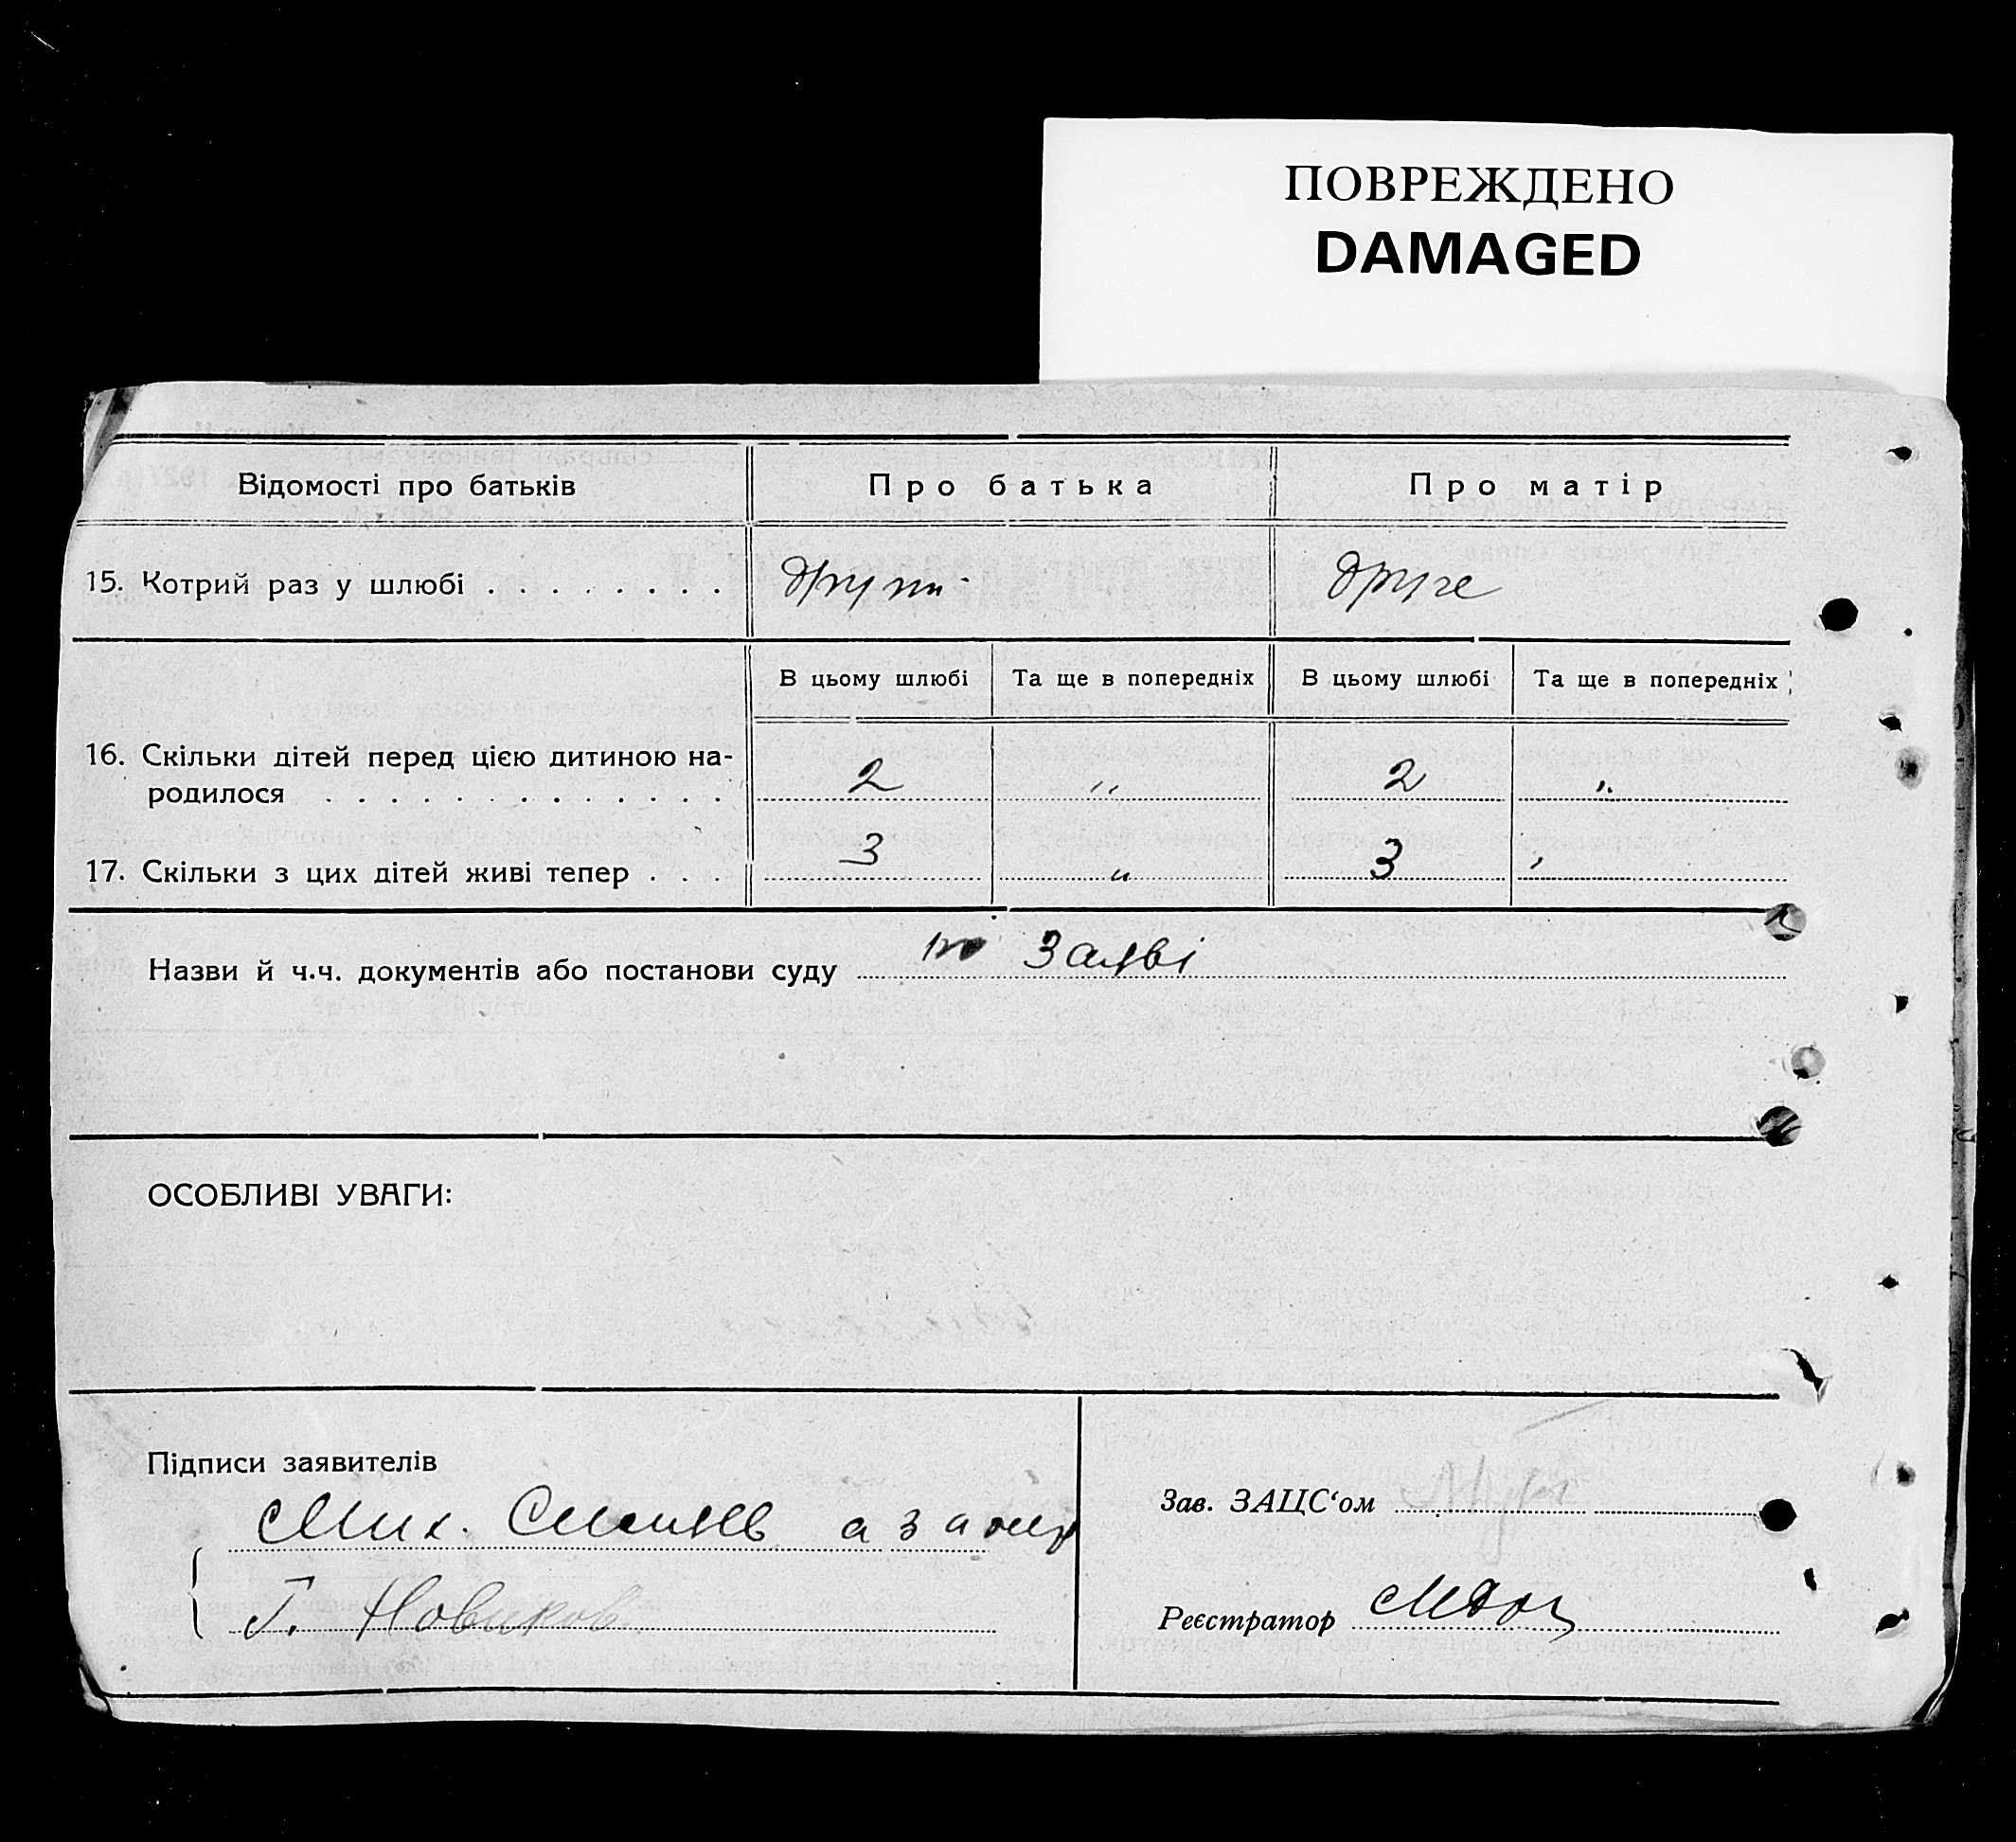 ПОВРЕЖДЕНО
DAMAGED
Відомості про батьків Про батька Про матір
15. Котрий раз у шлюбі . . . . . . . . други друге
В цьому шлюбі Та ще в попередніх В цьому шлюбі Та ще в попередніх
16. Скільки дітей перед цією дитиною на-
родилося . . . . . . . . . . . . . 2 " 2 "
17. Скільки з цих дітей живі тепер . . . 3 " 3
Назви й ч.ч. документів або постанови суду по Заяві
ОСОБЛИВІ УВАГИ:
Підписи заявителів
Мих.
Г. Новиков
Зав. ЗАЦС‘ом
Реєстратор